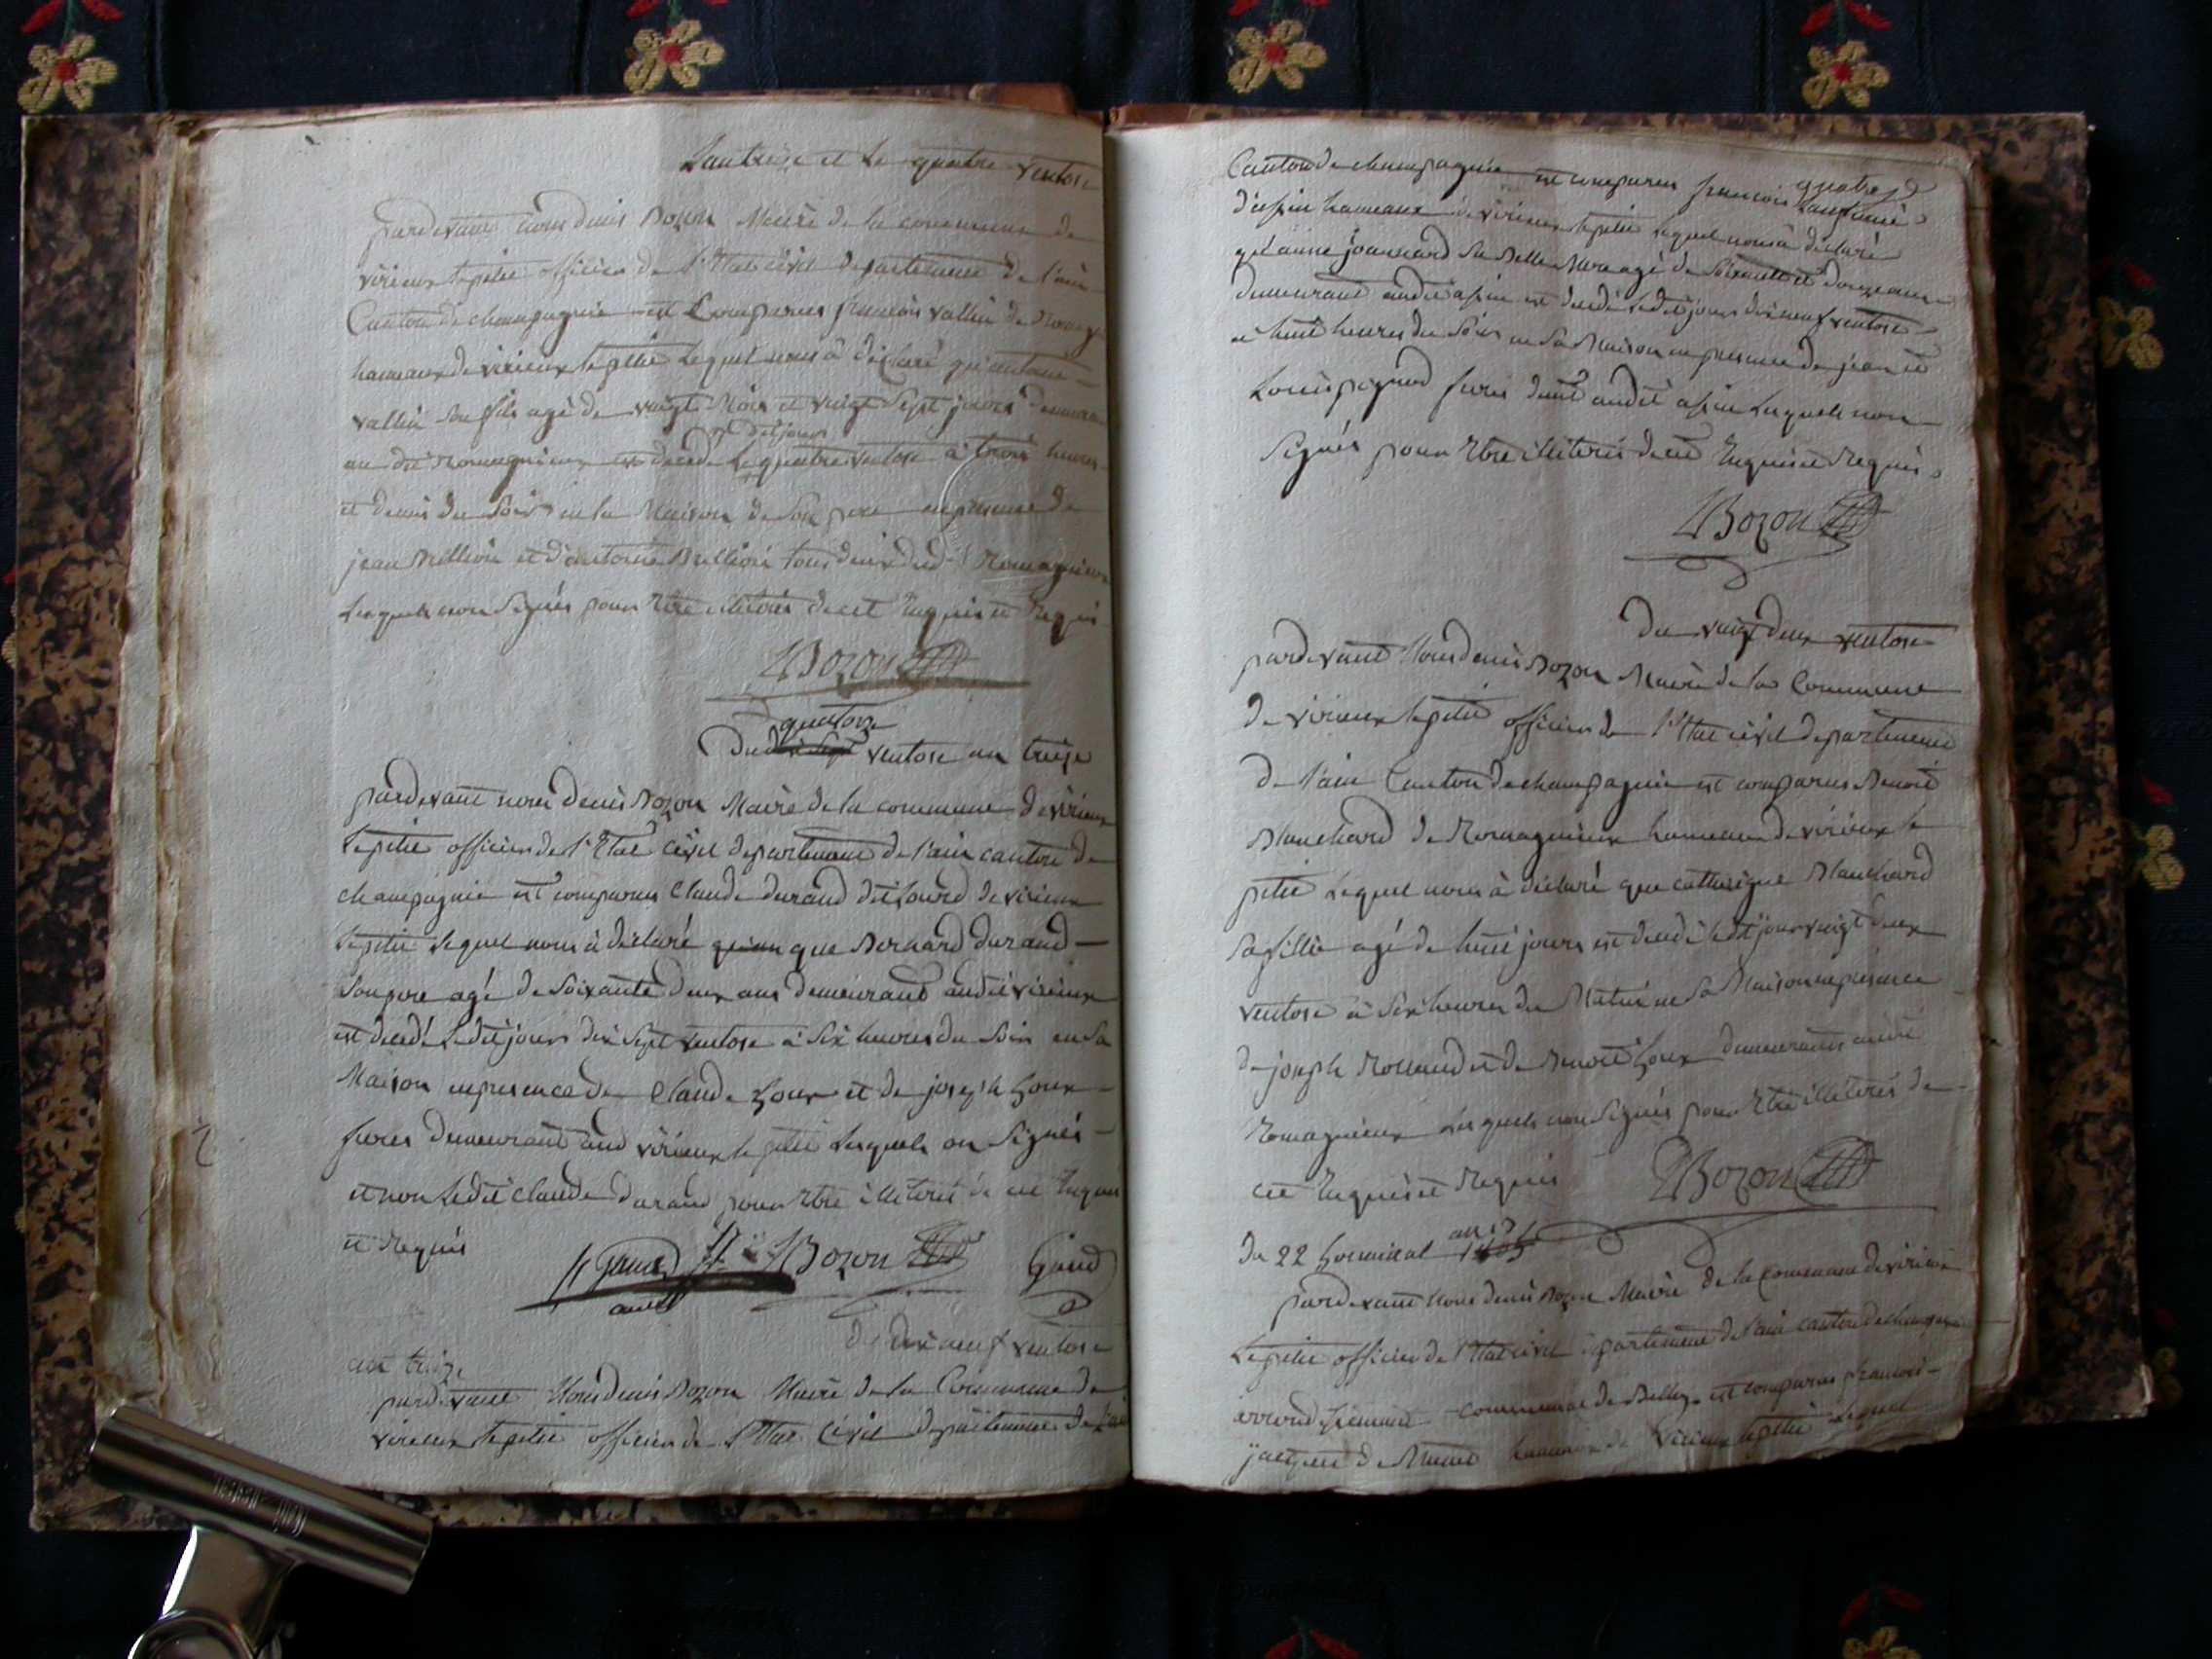 L'an treize et le quatre ventose
pardevant nous denis Bozon Maire de la commune de
virieux le petit officier de l'Etat civil departement de l'ain
Canton de champagnie est Comparus francois vallin de
hameaux de virieux le petit lequel nous à déclaré qu'antoine
vallin son fils agé de vingt Mois et vingt Sept jours demeurant
dit jours
au dit romagnieux est decedé le quatre ventose à trois heures
et demis du Soir en la Maison de Son pere en presence de
jean Million et d'antoine Millioni tous deux dud romagnieux
lesquels non Signés pour Etre illiterés de cet Enquis et Requis
DBozon
quatorze
Du dix Sept ventose an treize
pardevant nous denis Bozon Maire de la commune de virieux
le petit officier de l'Etat civil departement de l'ain canton de
champagnie est comparus Claude durand dit de virieux
le petit lequel nous à déclaré que Bernard durand
Son pere agé de Soixante deux ans demeurant audit virieux
est decedé le dit jours dix Sept ventose à Six heures du Soir en Sa
Maison en presence de Claude et de joseph
freres demeurant aud virieux le petit lesquels on Signés
et non le dit Claude durand pour Etre illiteré de ce Enquis
et Requis
DBozon
du dix neuf ventose
an treize
pardevant Nous denis Bozon Maire de la Commune de
virieux le petit officier de l'Etat Civil departement de l'ain
Canton de champagnie est comparus francois
d'assin hameaux de virieux le petit lequel nous à déclaré
qu'anne sa Belle Mere agé de Soixante et douze ans
demeurant audit assin est decedé le dit jours dix neuf ventose
à huit heures du Soir en Sa Maison en presence de jean et
Louis freres dud audit assin lesquels non
Signés pour Etre illiterés de ce Enquis et Requis
DBozon
Du vingt deux ventose
pardevant Nous denis Bozon Maire de la Commune
de virieux le petit officier de l'Etat civil departement
de l'ain Canton de champagnie est comparus Benoit
Blanchard de Romagnieux hameau de virieux le
petit lequel nous à déclaré que catherigne Blanchard
Sa fille agé de huit jours est decedé le dit jour vingt deux
ventose à Six heures du Matin en Sa Maison en presence
de joseph Rolland et de Benoit demeurants audit
Romagnieux lesquels non Signés pour Etre illiterés de
cet Enquis et Requis
DBozon
an 13
Du 22 Germinal
pardevant Nous denis Bozon Maire de la Commune de virieux
le petit officier de l'Etat civil departement de l'ain canton de champagne
arrondissement communal de Belley est comparus francois
de Munet hameaux de Virieux le petit lequel